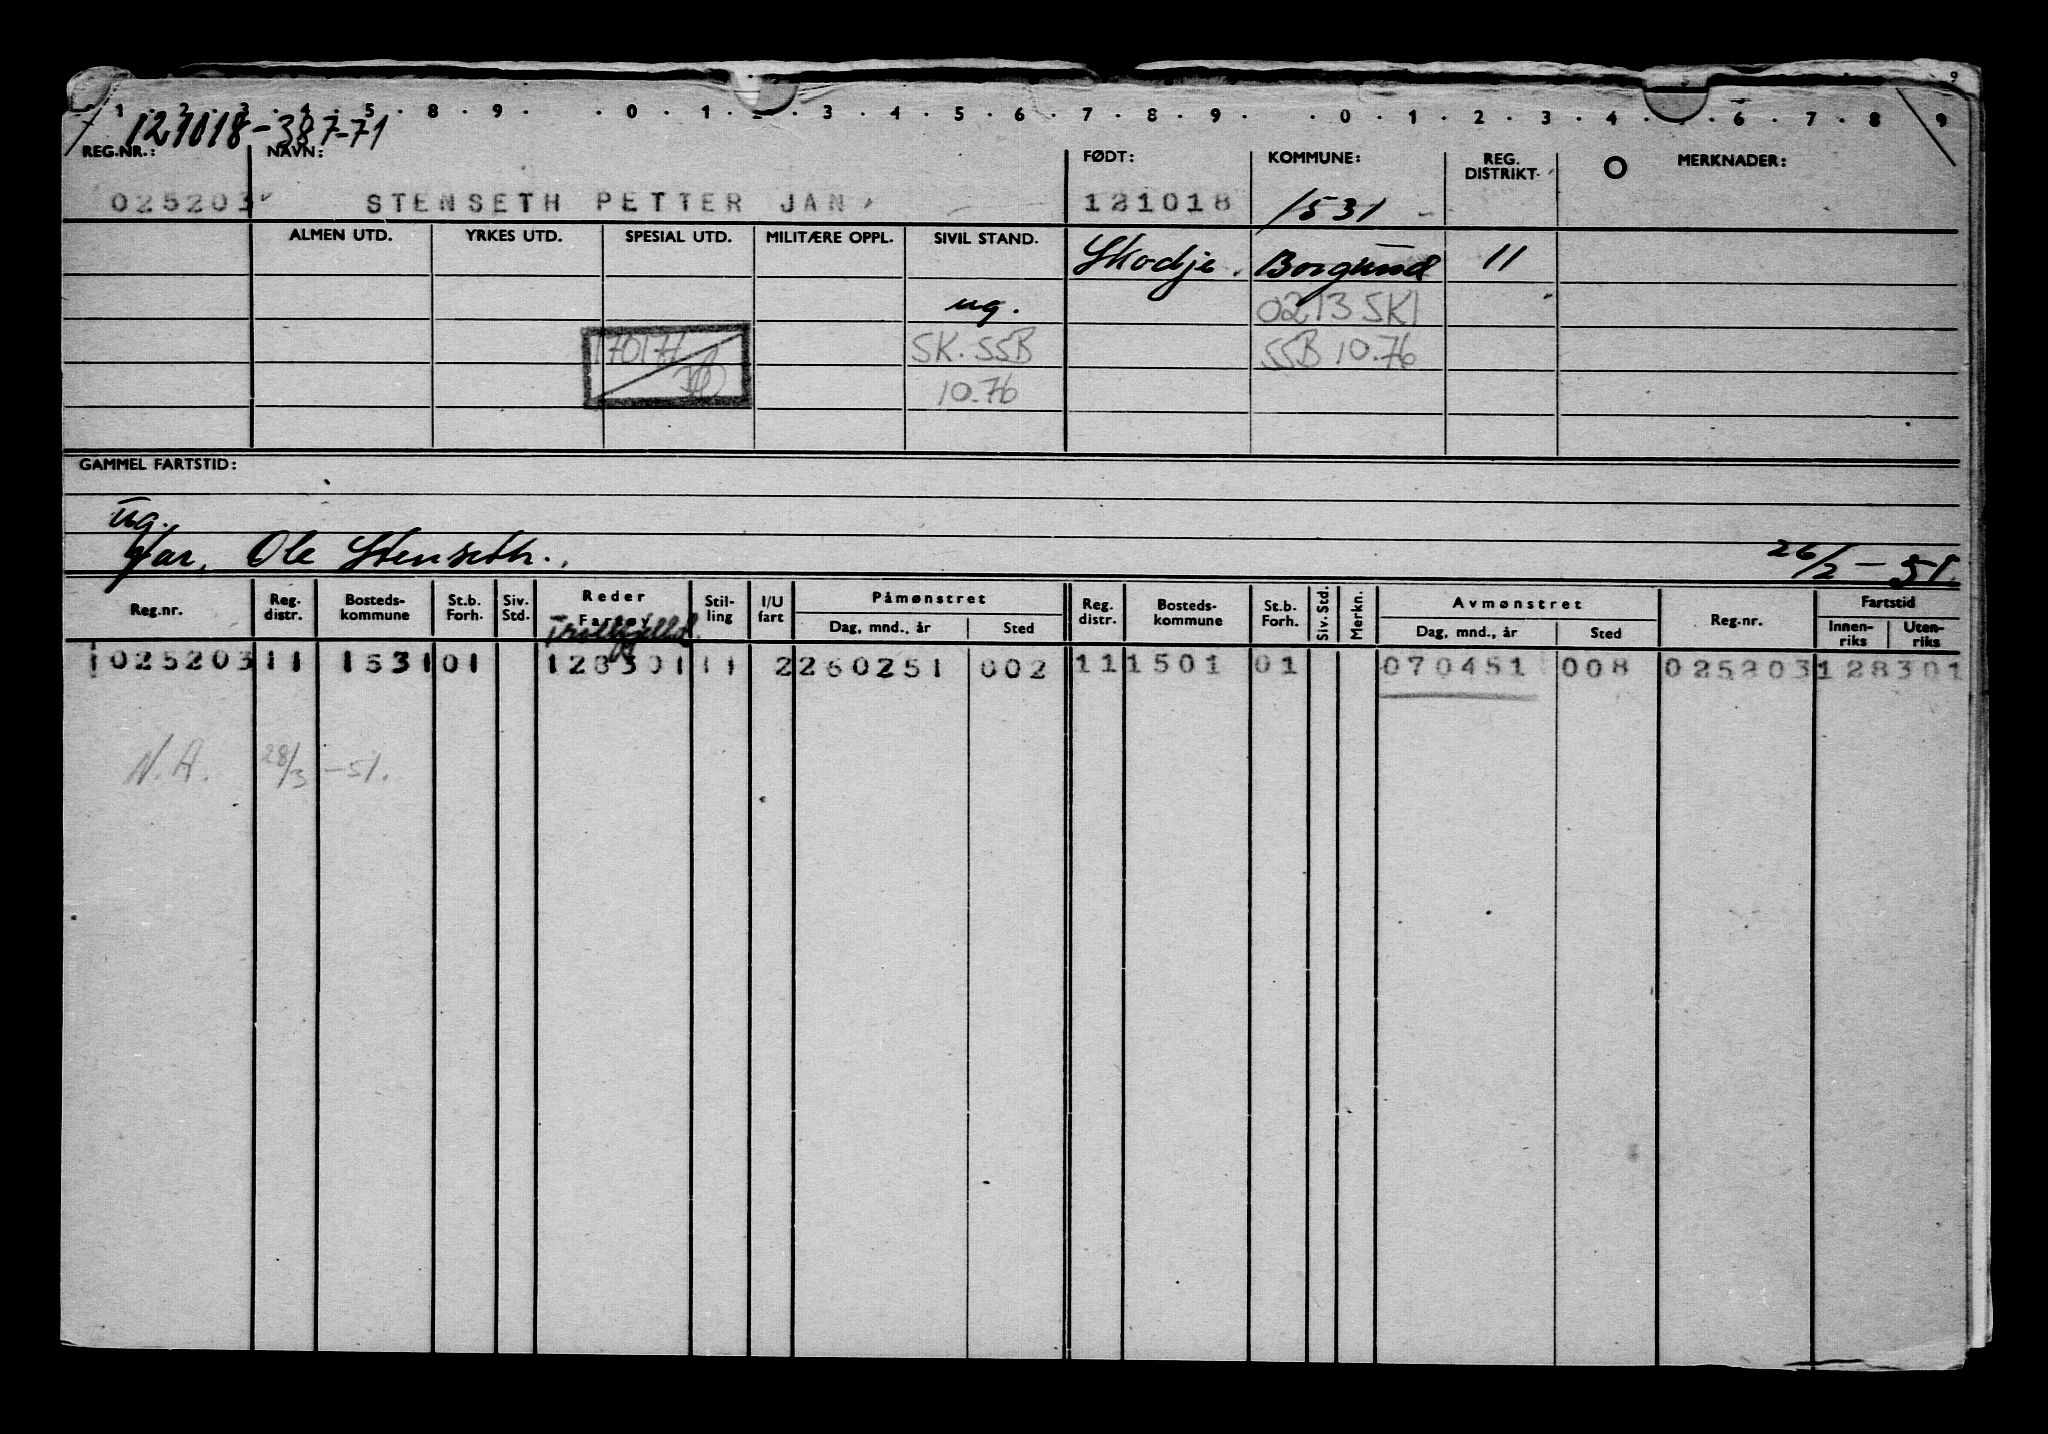 1 . 2 . 3 . 4 . 5 . 8 . 9 . . 0 . 1 . 2 . 3 . 4 . 5 . 6 . 7 . 8 . 9 . . 0 . 1 . 2 . 3 . 4 . 5 . 6 . 7 . 8 . 9
121018-387-71
REG.NR.: NAVN: FØDT: KOMMUNE: REG. DISTRIKT. MERKNADER:
025203 STENSETH PETTER JAN 121018 1531
ALMEN UTD. YRKES UTD. SPESIAL UTD. MILITÆRE OPPL. SIVIL STAND. Skodje. Borgund 11
ug. 0213 SKI
170171 SK. SSB SSB 10.76
10.76
GAMMEL FARTSTID:
ug.
Far, Ole Stenseth. 26/2-51.
Reg.nr. Reg. distr. Bosteds-kommune St.b. Forh. Siv. Std. Reder Fartøy Stil-ling I/U fart Påmønstret Dag, mnd., år Sted Reg. distr. Bosteds-kommune St.b. Forh. Siv. Std. Merkn. Avmønstret Dag, mnd., år Sted Reg.nr. Fartstid Innen-riks Uten-riks
Trollfjell
025203 11 1531 01 128301 11 2 260251 002 11 1501 01 070451 008 025203 128301
N.A. 28/3 -51.